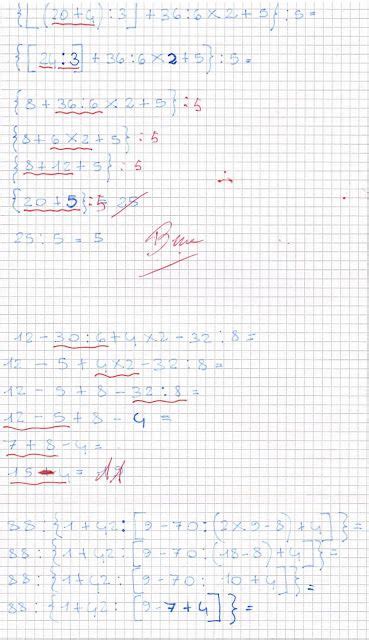 {[(20+4):3]+36:6×2+5}:5=
{[24:3]+36:6×2+5}:5=
{8+36:6×2+5}:5
{8+6×2+5}:5
{8+12+5}:5
{20+5}:5 25
25:5=5 Bene
12-30:6+4×2-32:8=
12-5+4×2-32:8=
12-5+8-32:8=
12-5+8-4=
7+8-4=
15-4=11
88:{1+42:[9-70:(2×9-8)+4]}=
88:{1+42:[9-70:(18-8)+4]}=
88:{1+42:[9-70:10+4]}=
88:{1+42:[9-7+4]}=